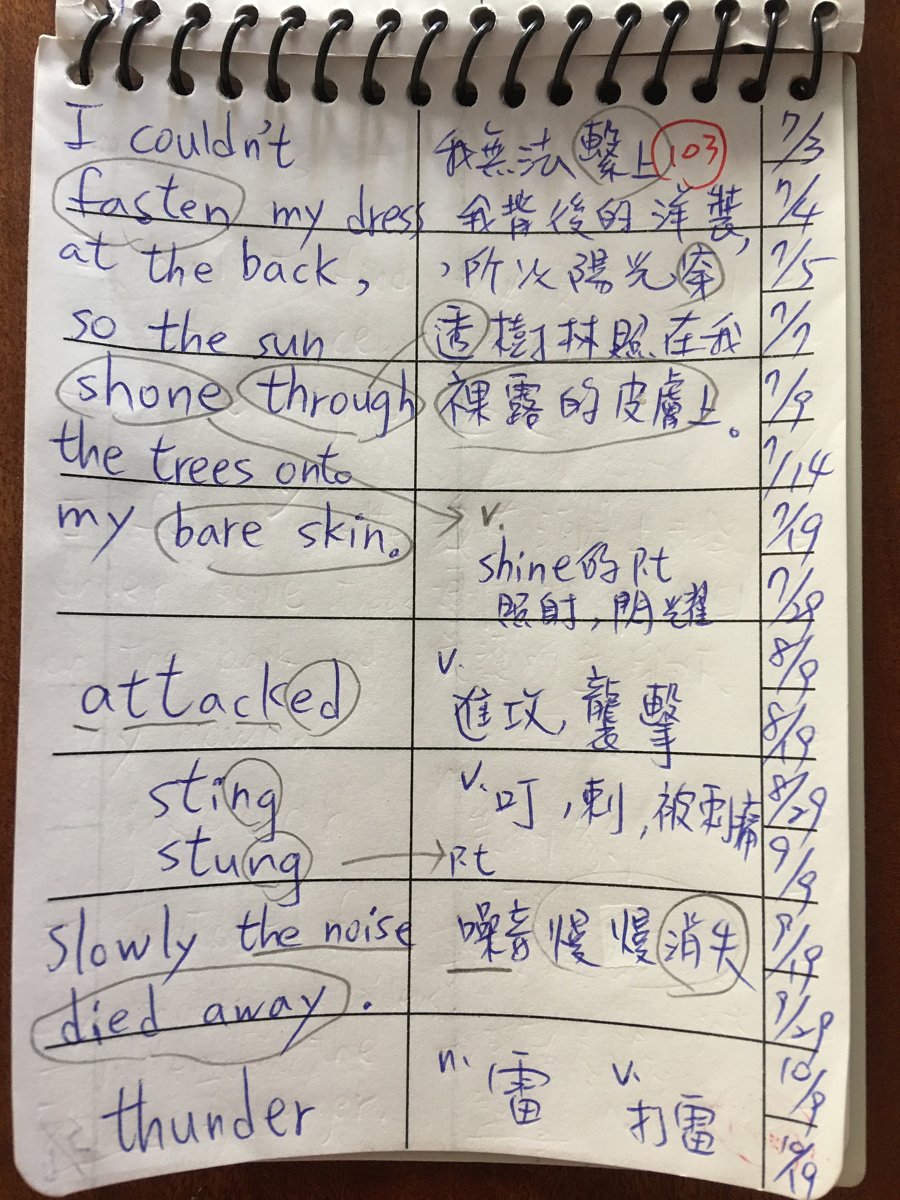 I couldn't
fasten my dress
at the back,
so the sun
shone through
the trees onto
my bare skin.
我無法繫上 103
我背後的洋裝,
,所以陽光穿
透樹林照在我
裸露的皮膚上。
v.
shine的p.t
照射,閃耀
attacked
v.
進攻,襲擊
sting
v. 叮,刺,被刺痛
stung
p.t
slowly the noise
died away.
噪音慢慢消失
thunder
n. 雷
v. 打雷
7/3
7/4
7/5
7/7
7/9
7/14
7/19
7/29
8/9
8/19
8/29
9/9
9/19
9/29
10/9
10/19